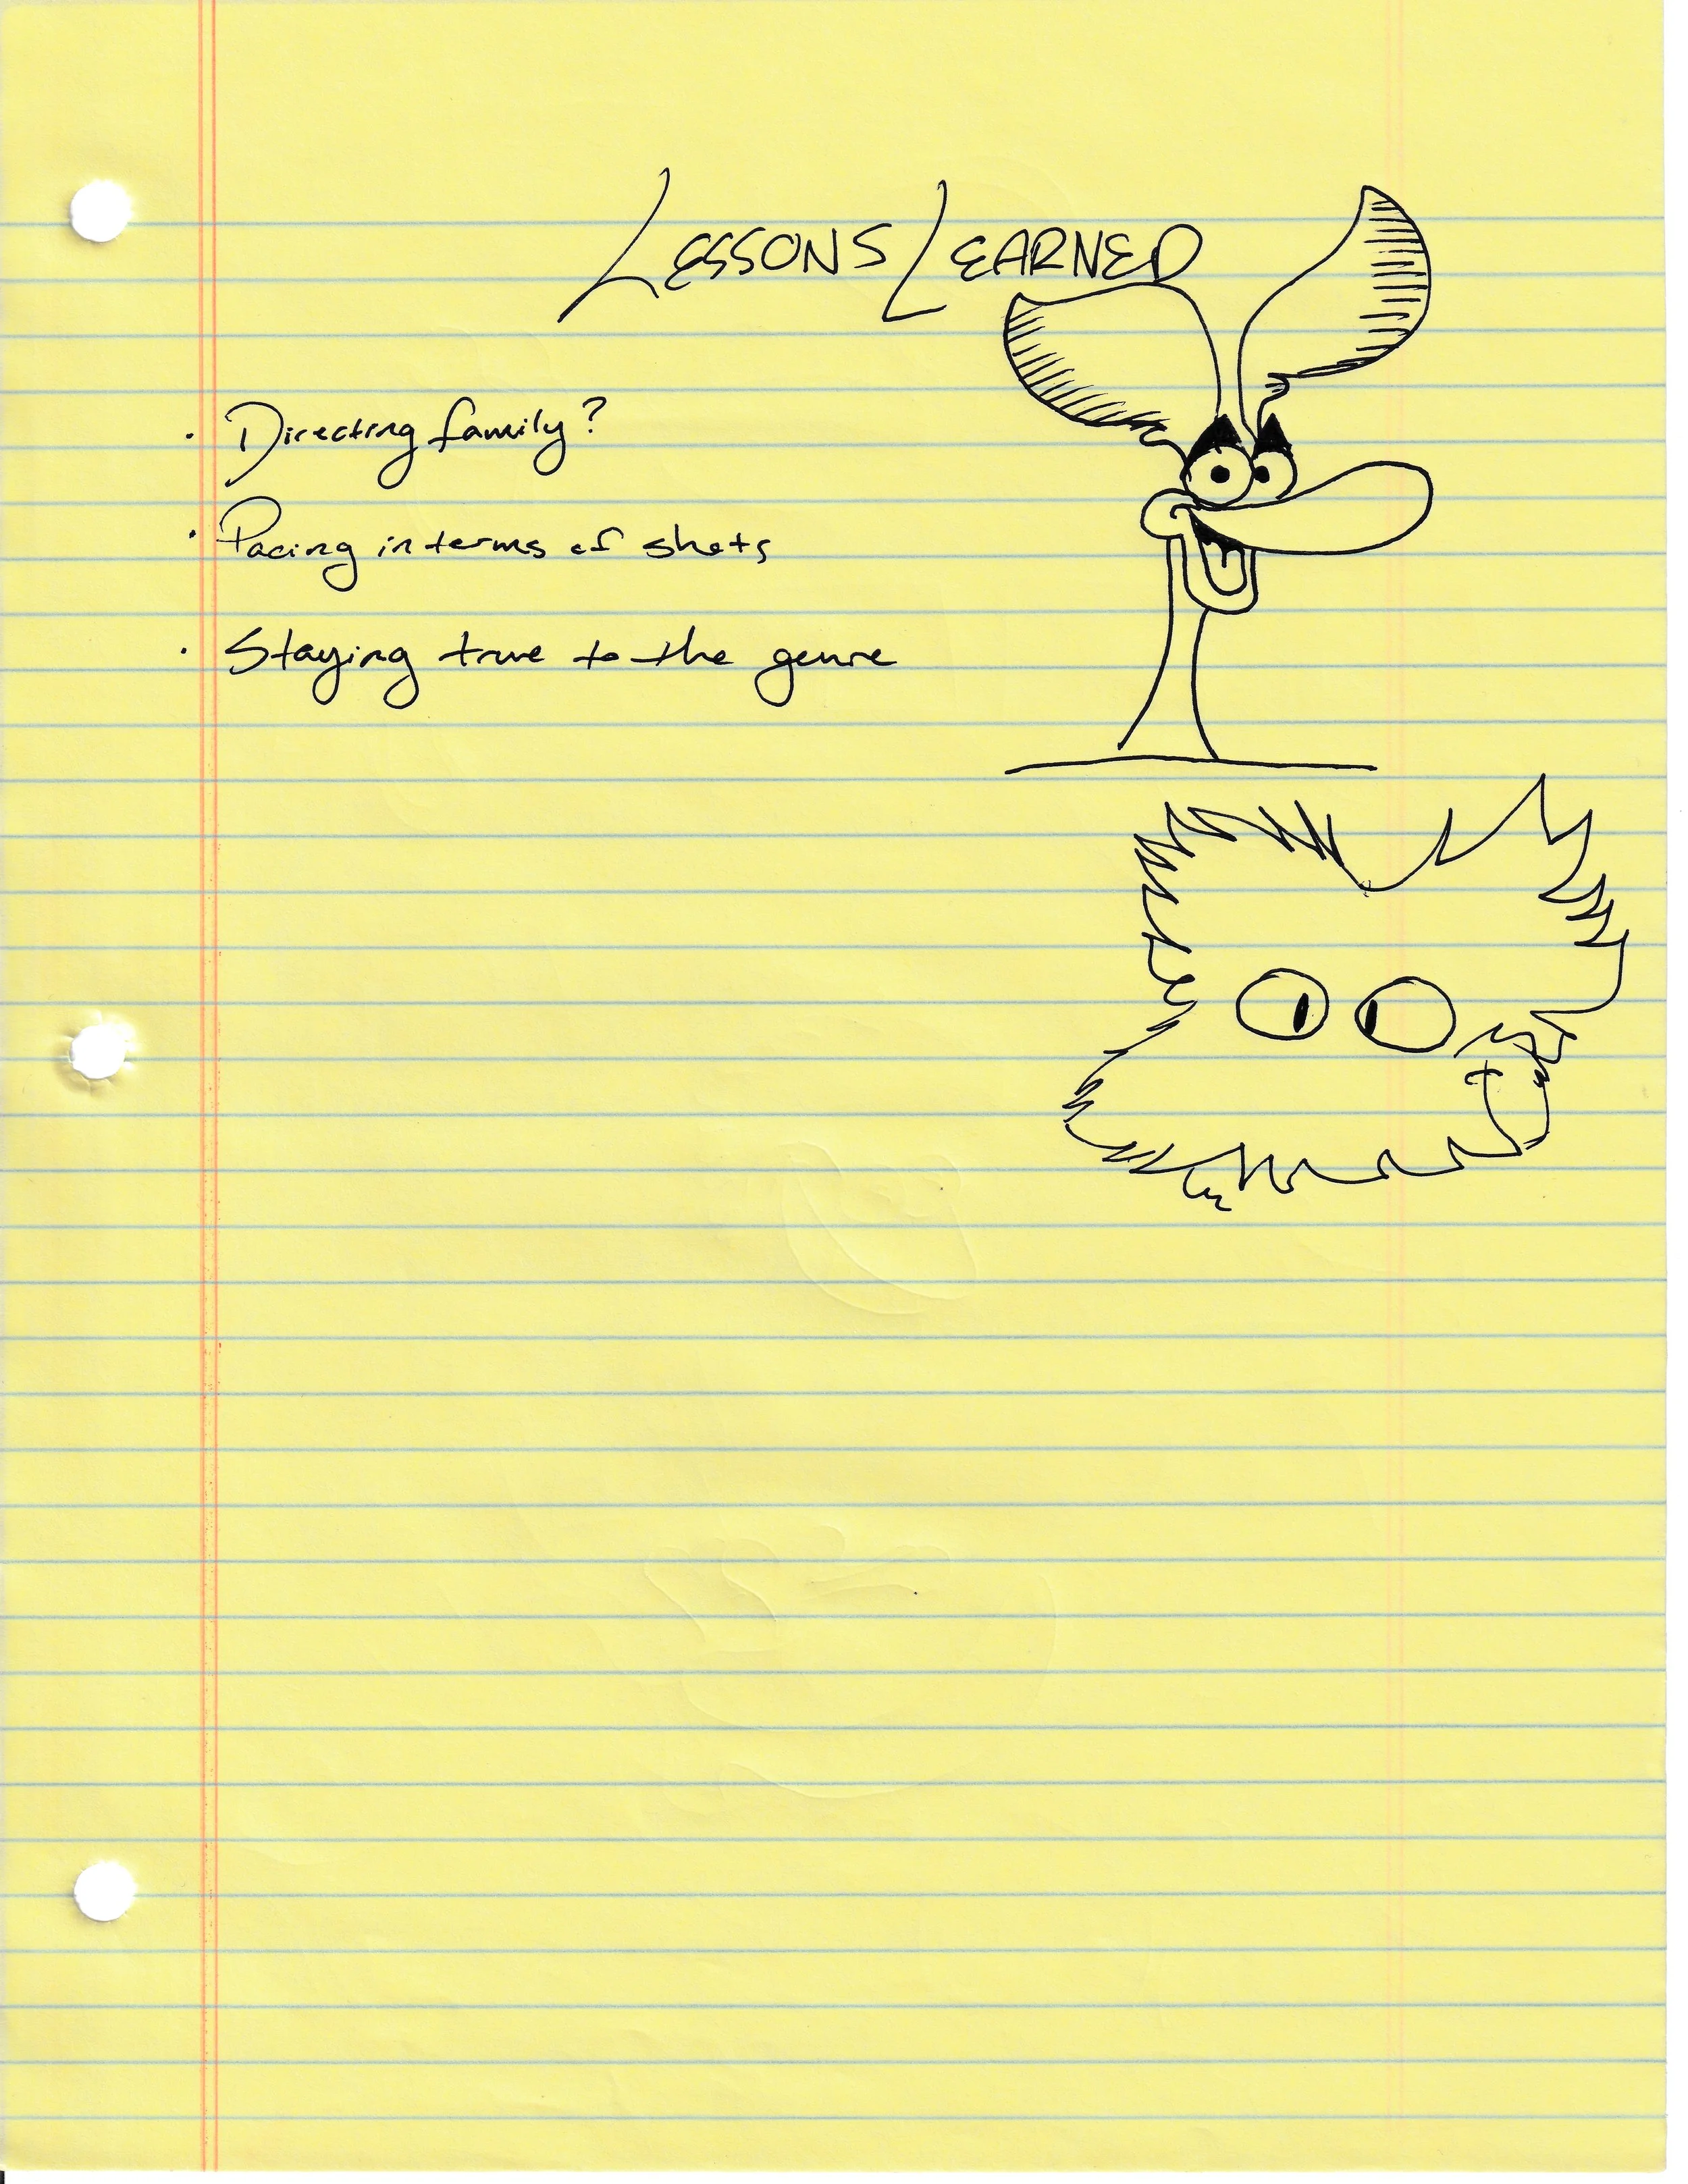 LESSONS LEARNED
· Directing family?
· Pacing in terms of shots
· Staying true to the genre